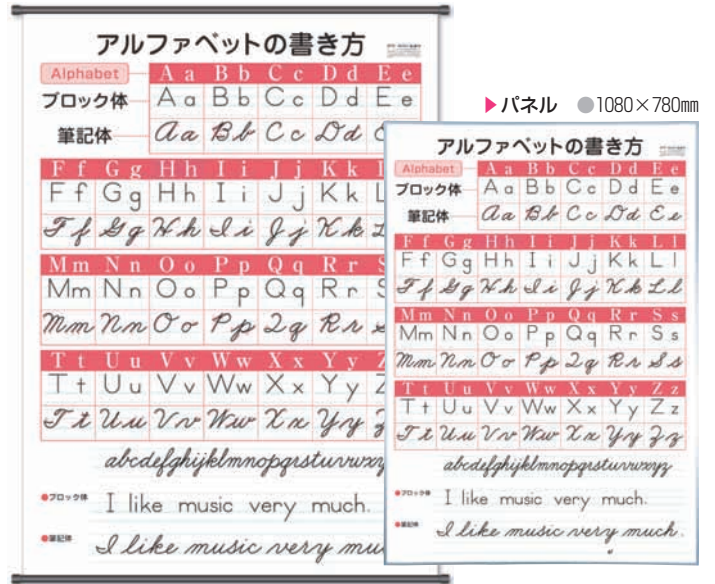 アルファベットの書き方
Alphabet Aa Bb Cc Dd Ee
ブロック体 Aa Bb Cc Dd Ee
筆記体 Aa Bb Cc Dd
Ff Gg Hh Ii Jj Kk
Ff Gg Hh Ii Jj Kk L
Ff Gg Hh Ii Jj Kk
Mm Nn Oo Pp Qq Rr
Mm Nn Oo Pp Qq Rr
Mm Nn Oo Pp Qq Rr
Tt Uu Vv Ww Xx Yy
Tt Uu Vv Ww Xx Yy Z
Tt Uu Vv Ww Xx Yy
abcdefghijklmnopqrstuvwxy
●ブロック体 I like music very much.
●筆記体 I like music very mu
▶パネル ●1080×780㎜
アルファベットの書き方
Alphabet Aa Bb Cc Dd Ee
ブロック体 Aa Bb Cc Dd Ee
筆記体 Aa Bb Cc Dd Ee
Ff Gg Hh Ii Jj Kk Ll
Ff Gg Hh Ii Jj Kk Ll
Ff Gg Hh Ii Jj Kk Ll
Mm Nn Oo Pp Qq Rr Ss
Mm Nn Oo Pp Qq Rr Ss
Mm Nn Oo Pp Qq Rr Ss
Tt Uu Vv Ww Xx Yy Zz
Tt Uu Vv Ww Xx Yy Zz
Tt Uu Vv Ww Xx Yy Zz
abcdefghijklmnopqrstuvwxyz
●ブロック体 I like music very much.
●筆記体 I like music very much.